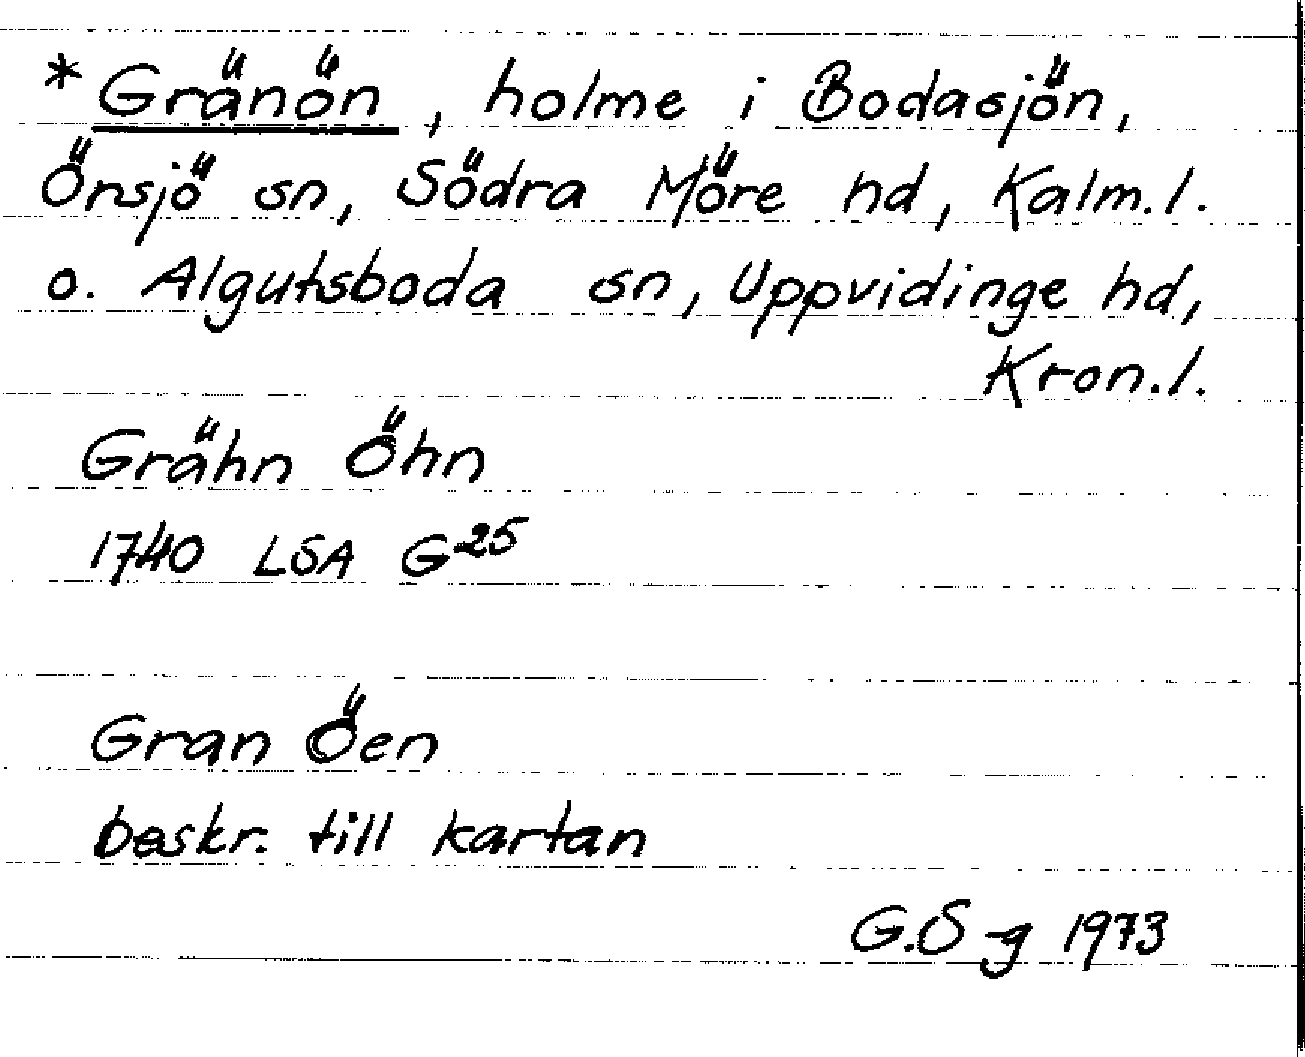 *Gränön, holme i Bodasjön,
Örsjö sn, Södra Möre hd, Kalm.l.
o. Algutsboda sn, Uppvidinge hd,
Kron.l.
Grähn Öhn
1740 LSA G25
Gran Öen
beskr. till kartan
G.S-g 1973